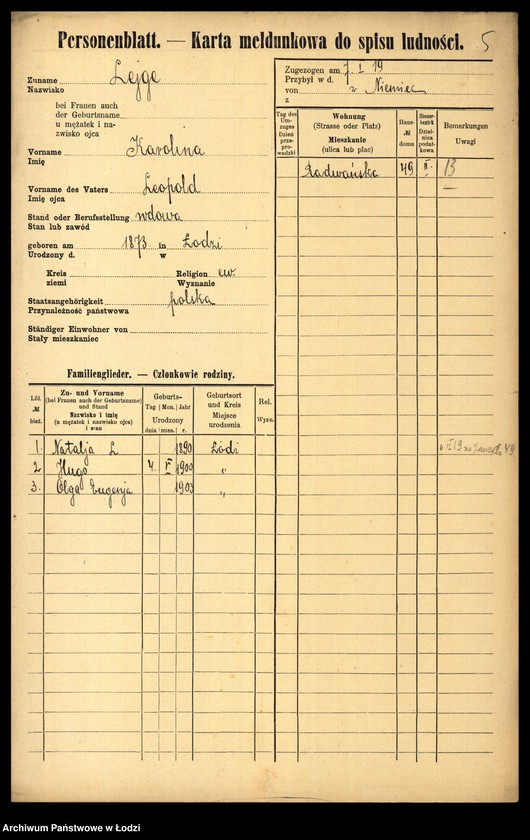 Personenblatt. — Karta meldunkowa do spisu ludności. 5
Zuname Lejge
Nazwisko
bei Frauen auch
der Geburtsname
u mężatek i na-
zwisko ojca
Vorname Karolina
Imię
Vorname des Vaters Leopold
Imię ojca
Stand oder Berufsstellung wdowa
Stan lub zawód
geboren am 1873 in Łodzi
Urodzony d. w
Kreis Religion ew.
ziemi Wyznanie
Staatsangehörigkeit polska
Przynależność państwowa
Ständiger Einwohner von
Stały mieszkaniec
Zugezogen am 7 I 19
Przybył w d.
von z Niemiec
z
Tag des Um-zuges Dzień prze-pro-wadzki
Wohnung
(Strasse oder Platz)
Mieszkanie
(ulica lub plac)
Haus-
№
domu
Steuer-bezirk Dziel-nica podat-kowa
Bemerkungen
Uwagi
Radwańska 49 II. 13
Familienglieder. — Członkowie rodziny.
Lfd.
№
bież.
Zu- und Vorname
(bei Frauen auch der Geburtsname)
und Stand
Nazwisko i imię
(u mężatek i nazwisko ojca)
i stan
Geburts-
Tag Mon. Jahr
Urodzony
dnia mies. r.
Geburtsort
und Kreis
Miejsce
urodzenia
Rel.
Wyzn.
1. Natalja L 1890 Łódź
2 Hugo 4. V 1900 "
3. Olga Eugenja 1903 "
Archiwum Państwowe w Łodzi